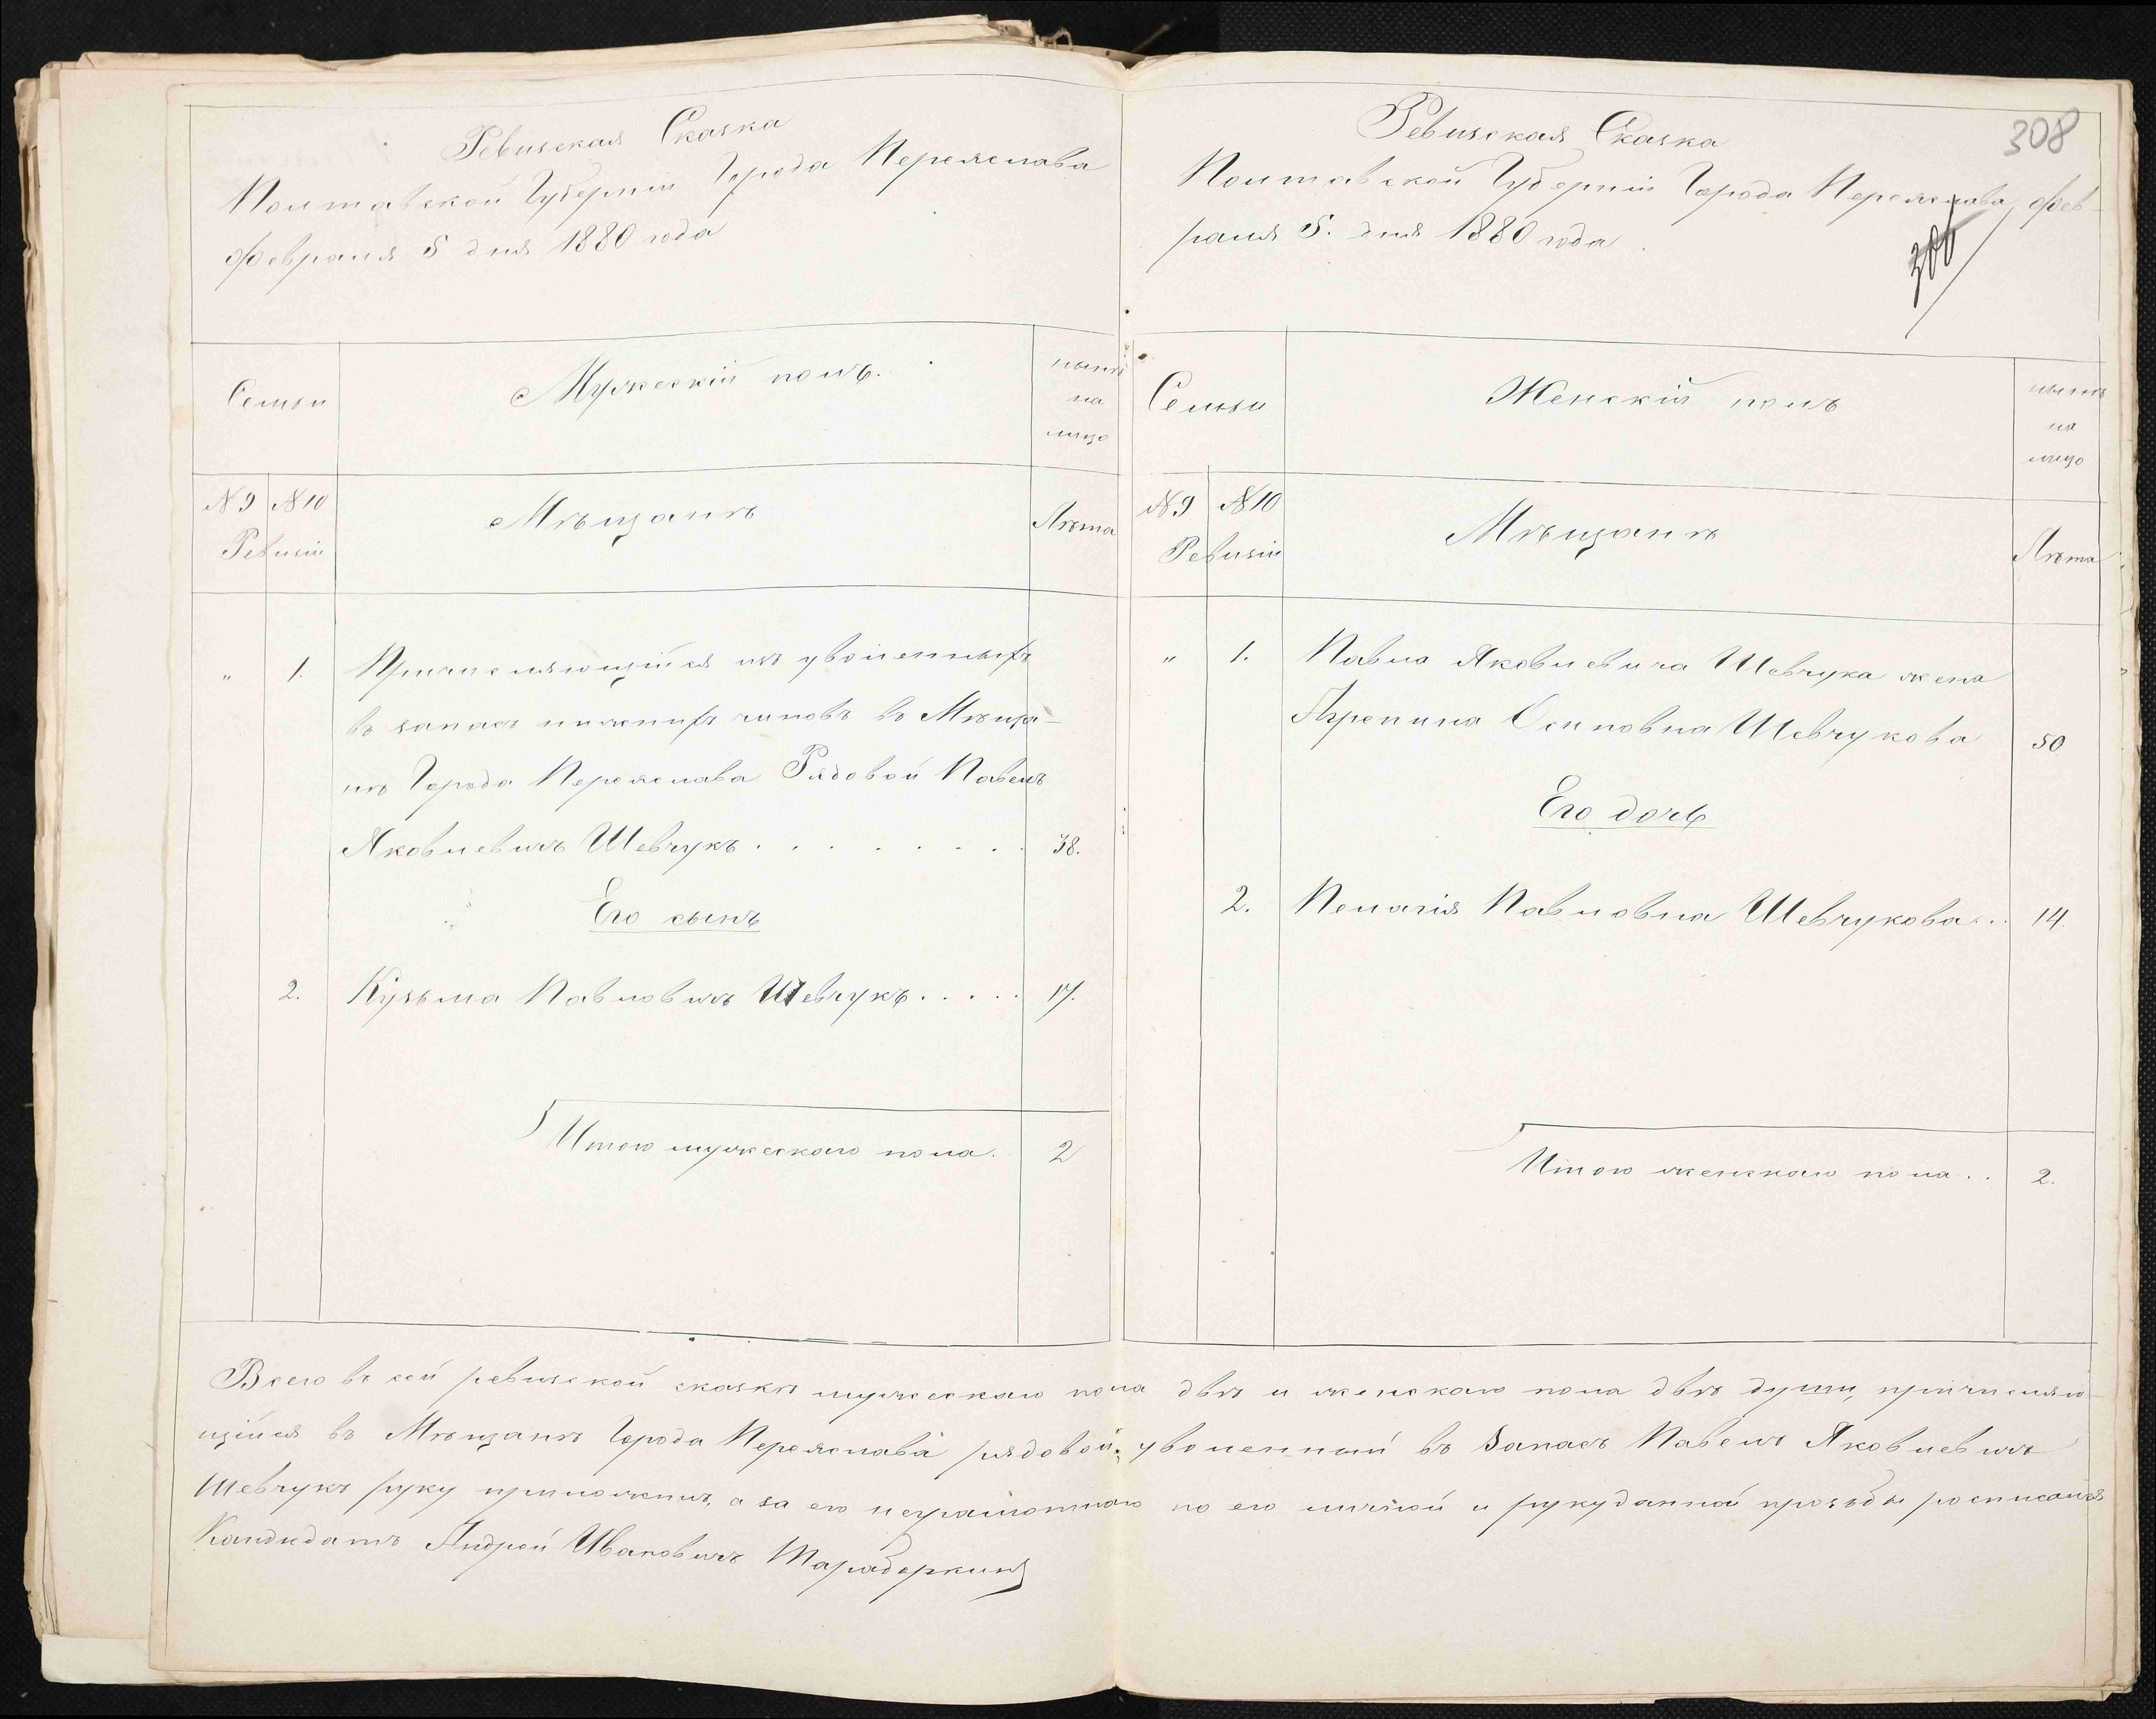 Ревизская Сказка
Полтавской Губерніи Города Переяслава
февраля 5 дня 1880 года
Семьи
Мужескій полъ.
нынѣ
на
лицо
№ 9 № 10
Ревизіи
Мѣщанѣ
Лѣта
" 1. Причисляющійся изъ уволенныхъ
въ запасъ нижнихъ чиновъ въ Мѣща-
нѣ Города Переяслава Рядовой Павелъ
Яковлевичъ Шевчукъ . . . . . . . . 38.
Его сынъ
2. Кузьма Павловичъ Шевчукъ . . . . . 17.
Итого мужескаго пола. 2
308
Ревизская Сказка
Полтавской Губерніи Города Переяслава, фев-
раля 5. дня 1880 года.
Семьи
Женскій полъ
нынѣ
на
лицо
№ 9 № 10
Ревизіи
Мѣщанѣ
Лѣта
" 1. Павла Яковлевича Шевчука жена
Агрепина Осиповна Шевчукова 50
Его дочь
2. Пелагія Павловна Шевчукова . . . 14.
Итого женскаго пола . . 2.
Всего въ сей ревизской сказкѣ мужескаго пола двѣ и женскаго пола двѣ души, причисляю-
щійся въ Мѣщанѣ Города Переяслава рядовой уволенный въ Запасъ Павелъ Яковлевичъ
Шевчукъ руку приложилъ, а за его неграмотнаго по его личной и рукуданной прозьбы росписался
Кандидатъ Андрей Ивановичъ